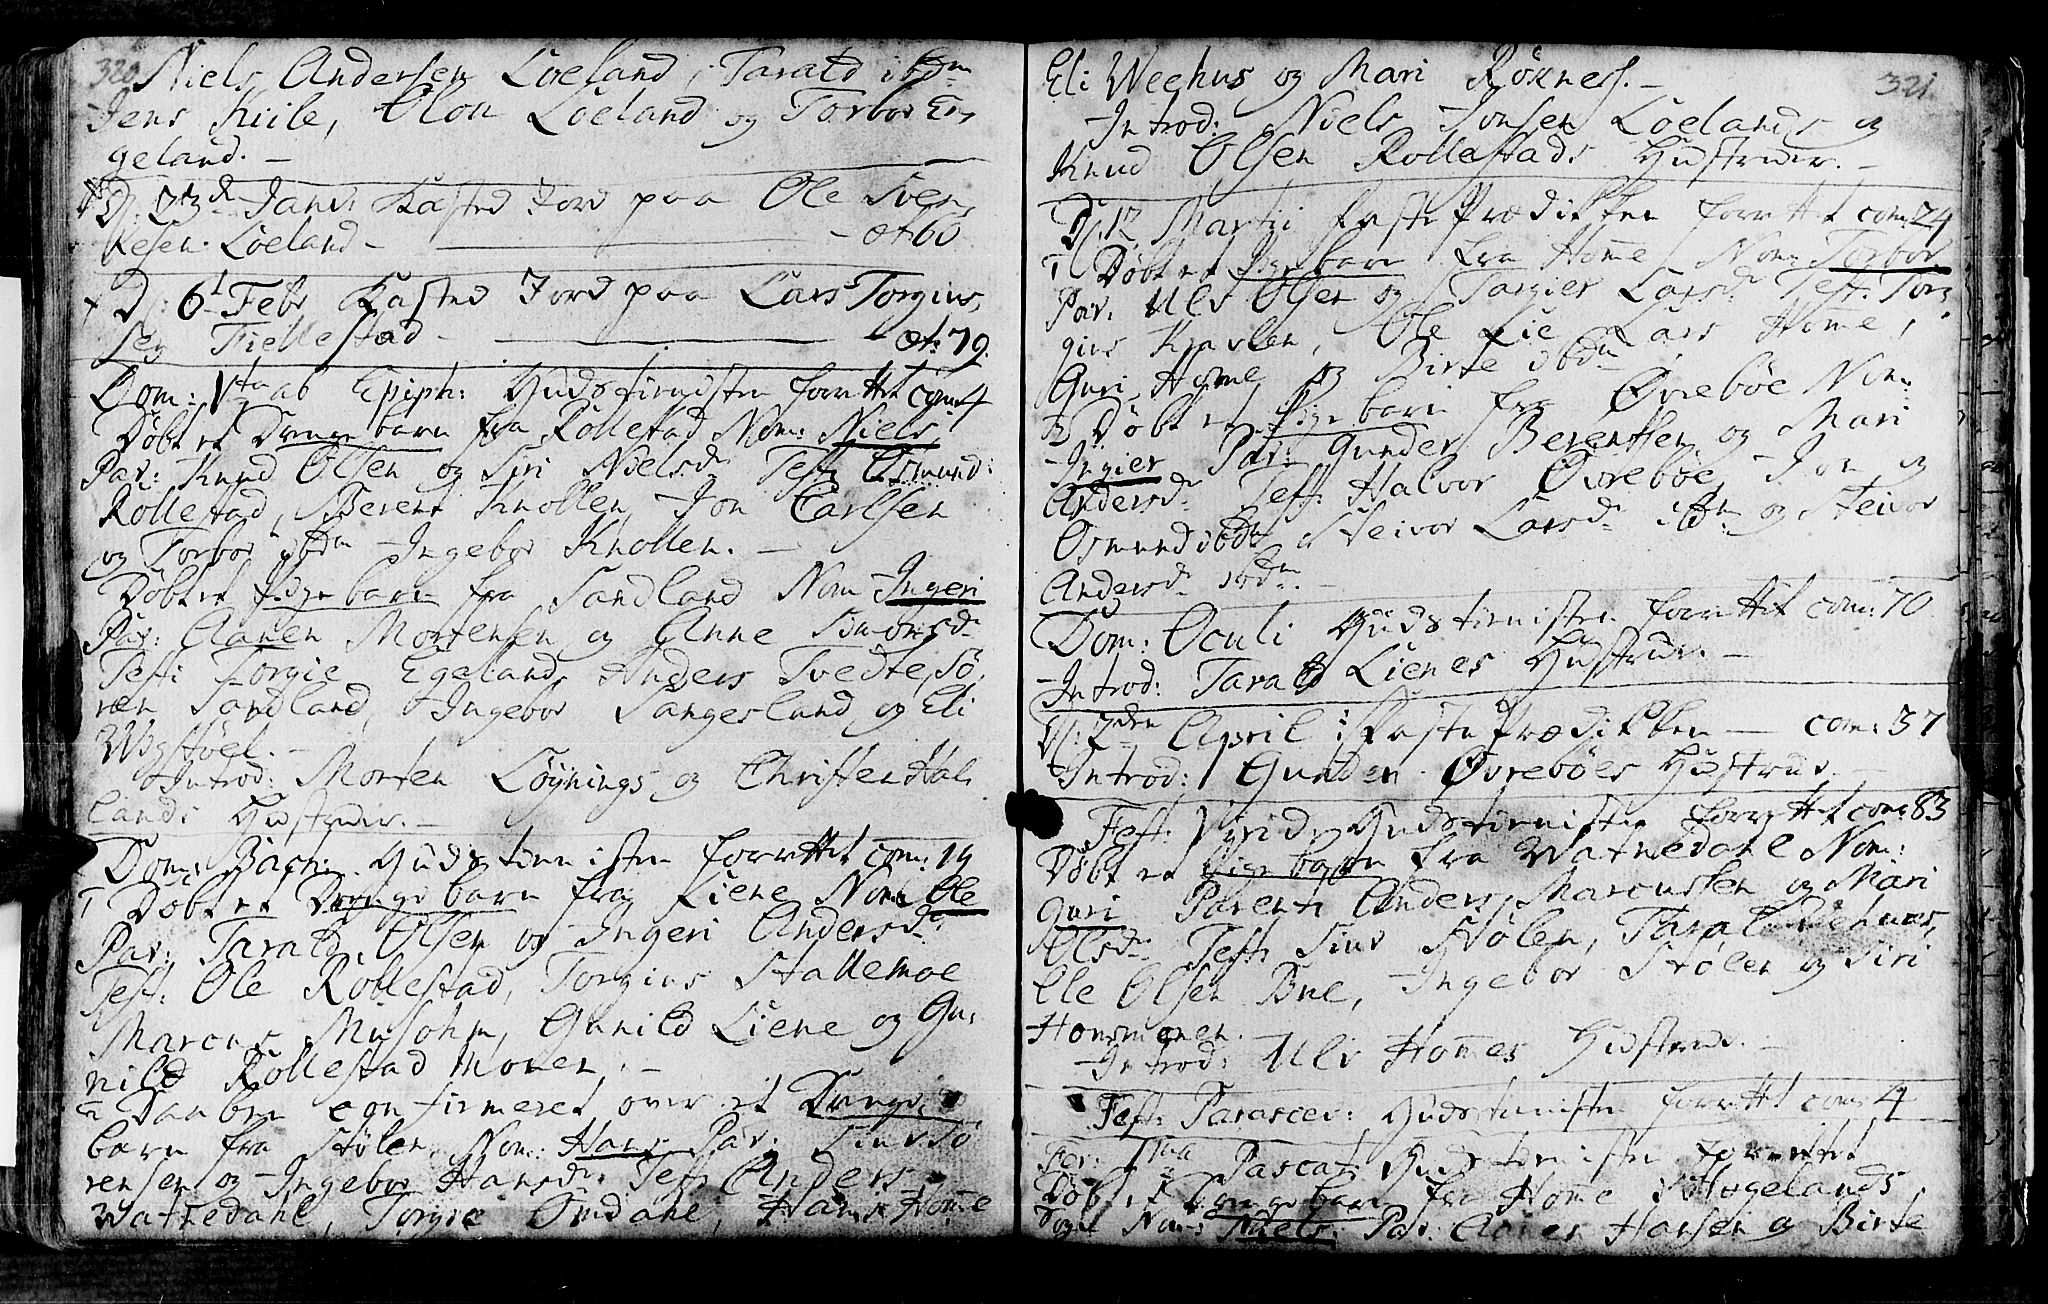 320 Niels Andersen Löeland, Tarald ibdm
Jens Kiile, Olou Löeland og Torbor En,
geland. –
D: 23d Janv: Kasted Jord paa Ole Sven,
kesen Löeland – æt 60
D: 6t Febr Kasted Jord paa Lars Torgius,
sen Fiellestad – æt: 79.
Dom: Vta ab Epiph: Gudstienisten forrettet com: 4
Döbt et Drengebarn fra Röllestad Nom: Niels
Par: Knud Olsen og Siri Nielsd. Test: Osmund:
Röllestad, Berent Knollen, Jon Carlsen
og Torbor ibdm Ingebor Knollen. –
Döbt et Pigebarn fra Sandland Nom Ingeri
Par: Aanen Mortensen og Anne Simonsd.
Test: Torgie Egeland, Anders Tvedte, Sö,
ren Sandland, Ingebor Sangesland og Eli
Wigstöel. –
Introd: Morten Löynings og Christen Hal,
lands Hustruer. –
Dom: Gudstienisten forrettet com: 19
1 Döbt et Drengebarn fra Liene Nom: Ole
Par: Tarald Olsen og Ingeri Andersd.
Test: Ole Röllestad, Torgius Stallemoe
Marcus Musohm, Gunild Liene og Gu,
nild Röllestad Monen. –
2 Daaben confirmeret over et Drenge,
barn fra Stölen. Nom: Hans Par: Siur Sö,
rensen og Ingebor Hansd. Test: Anders
Watnedahl, Torgie Omdahl, Hans Homme
Eli Weehus og Mari Röxnes. – 321.
Introd: Niels Jonsen Löelands og
Knud Olsen Rollestads Hustruer. –
D: 12 Martii FastePrædiken forrettet com: 24
1 Döbt et Pigebarn fra Home Nom: Torbor
Par. Ulv Olsen og Targier Larsd. Test: Tor,
gius Kjevlen, Ole Lie Lars Home,
Guri Home og Birte ibdm
2 Döbt et Pigebarn fra Övreböe Nom:
Ingier Par: Gunder Berentsen og Mari
Andersd. Test: Halvor Övreböe, Jon og
Osmund ibdm Steivor Larsd. ibdm og Steivor
Andersd. ibdm. –
Dom: Oculi Gudstienisten forrettet com: 70
Introd: Tarald Lienes Hustrue. –
D: 2den April FastePrædikken — com: 37
Introd: Gunder Övreböes Hustrue. –
Fest: Virid: Gudstienisten forrettet com: 83
Döbt et Pigebarn fra Watnedahl Nom:
Guri Parent: Anders Marcussen og Mari
Olsd. Test: Siur Stölen, Tarald
Ole Olsen Bue, Ingebor Stölen og Siri
Homsmonen.
Introd: Ulv Homes Hustrue. –
Fest: Parascev: Gudstienisten forrettet com: 4
Fer: 1ma Pascat: Gudstienisten forrettet
Döbt et Drengebarn fra Home i Hægelands
Sogn Nom: Niels. Par: Aanen Hansen og Birte